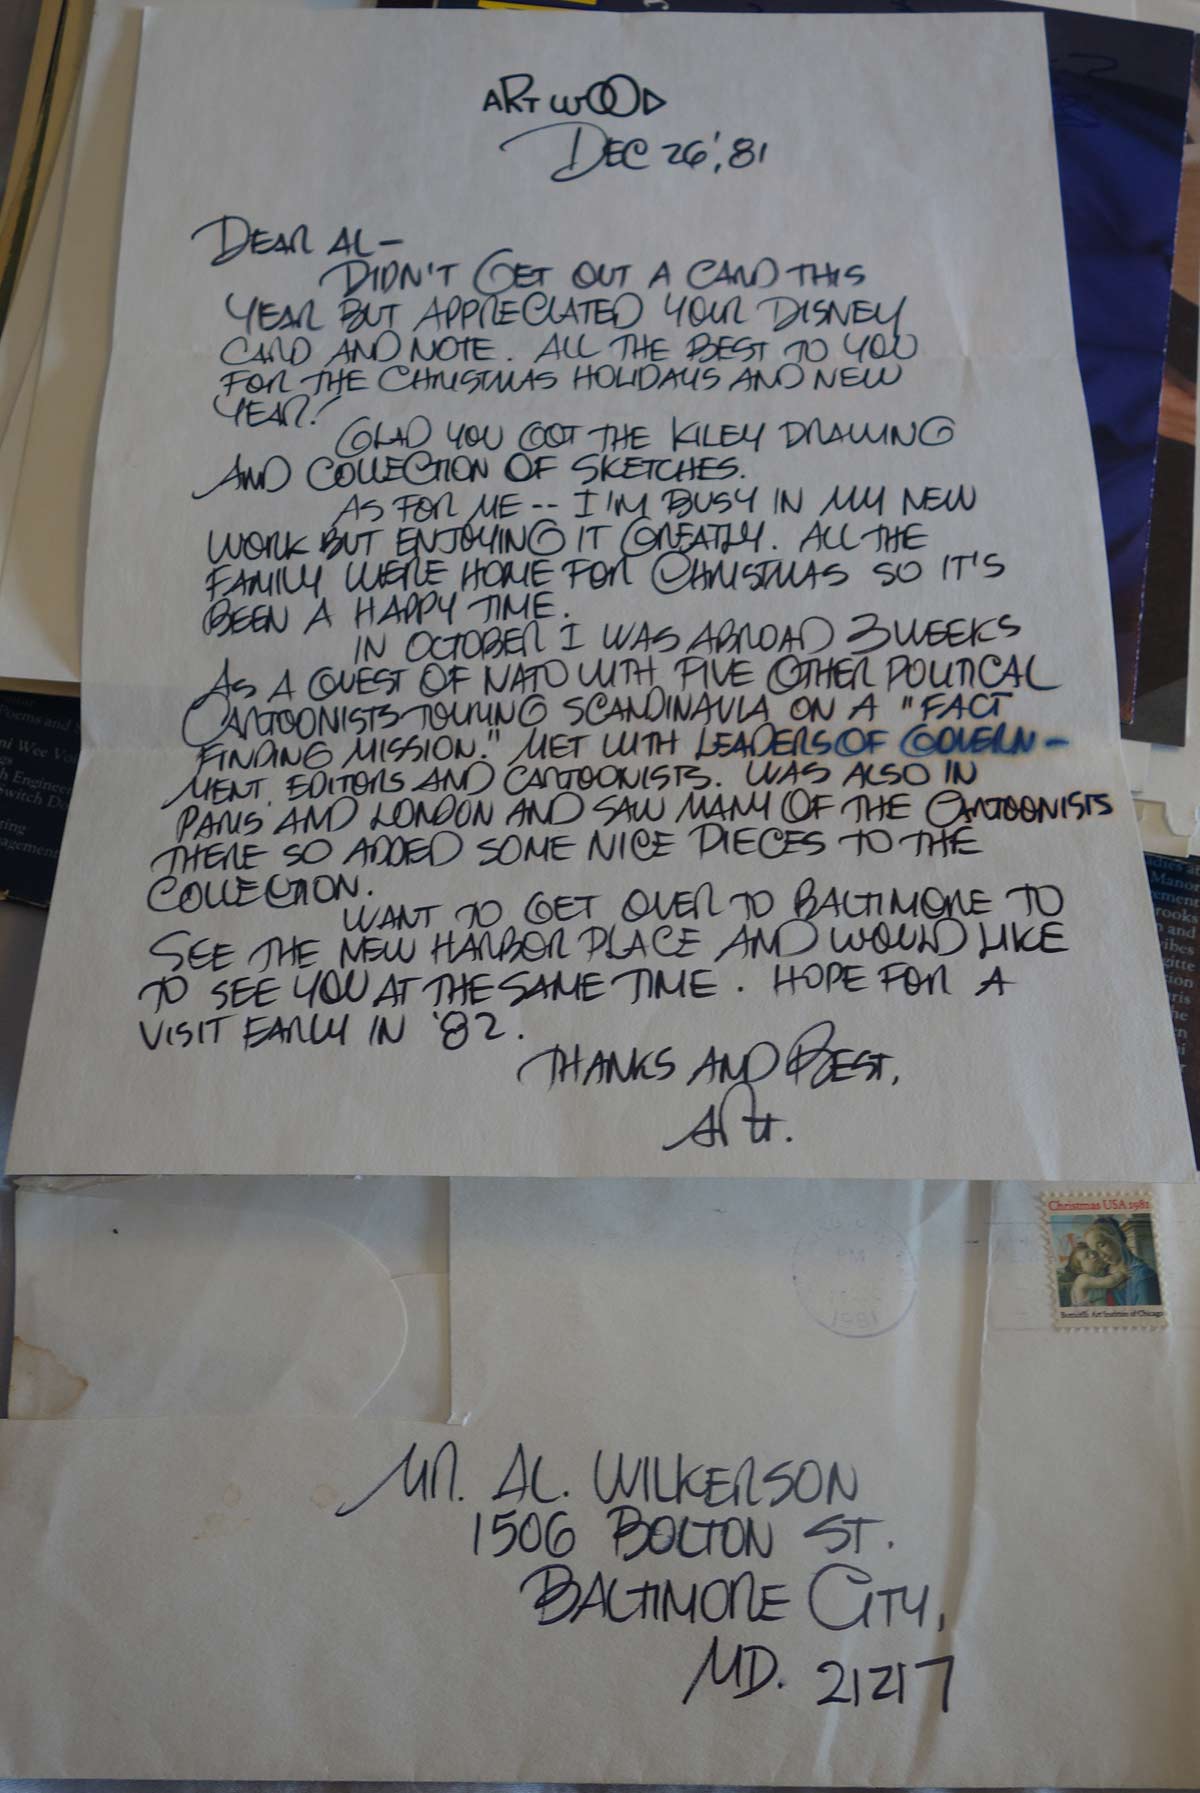 ART WOOD
DEC 26, '81
DEAR AL—
DIDN'T GET OUT A CARD THIS
YEAR BUT APPRECIATED YOUR DISNEY
CARD AND NOTE. ALL THE BEST TO YOU
FOR THE CHRISTMAS HOLIDAYS AND NEW
YEAR!
GLAD YOU GOT THE KILEY DRAWING
AND COLLECTION OF SKETCHES.
AS FOR ME -- I'M BUSY IN MY NEW
WORK BUT ENJOYING IT GREATLY. ALL THE
FAMILY WERE HOME FOR CHRISTMAS SO IT'S
BEEN A HAPPY TIME.
IN OCTOBER I WAS ABROAD 3 WEEKS
AS A GUEST OF NATO WITH FIVE OTHER POLITICAL
CARTOONISTS TOURING SCANDINAVIA ON A "FACT
FINDING MISSION." MET WITH LEADERS OF GOVERN-
MENT, EDITORS AND CARTOONISTS. WAS ALSO IN
PARIS AND LONDON AND SAW MANY OF THE CARTOONISTS
THERE SO ADDED SOME NICE PIECES TO THE
COLLECTION.
WANT TO GET OVER TO BALTIMORE TO
SEE THE NEW HARBOR PLACE AND WOULD LIKE
TO SEE YOU AT THE SAME TIME. HOPE FOR A
VISIT EARLY IN '82.
THANKS AND BEST,
ART.
Christmas USA 1981
Botticelli: Art Institute of Chicago
PM
1981
MR. AL. WILKERSON
1506 BOLTON ST.
BALTIMORE CITY,
MD. 21217
Poems and
ni Wee
Engineer
witch
Manor